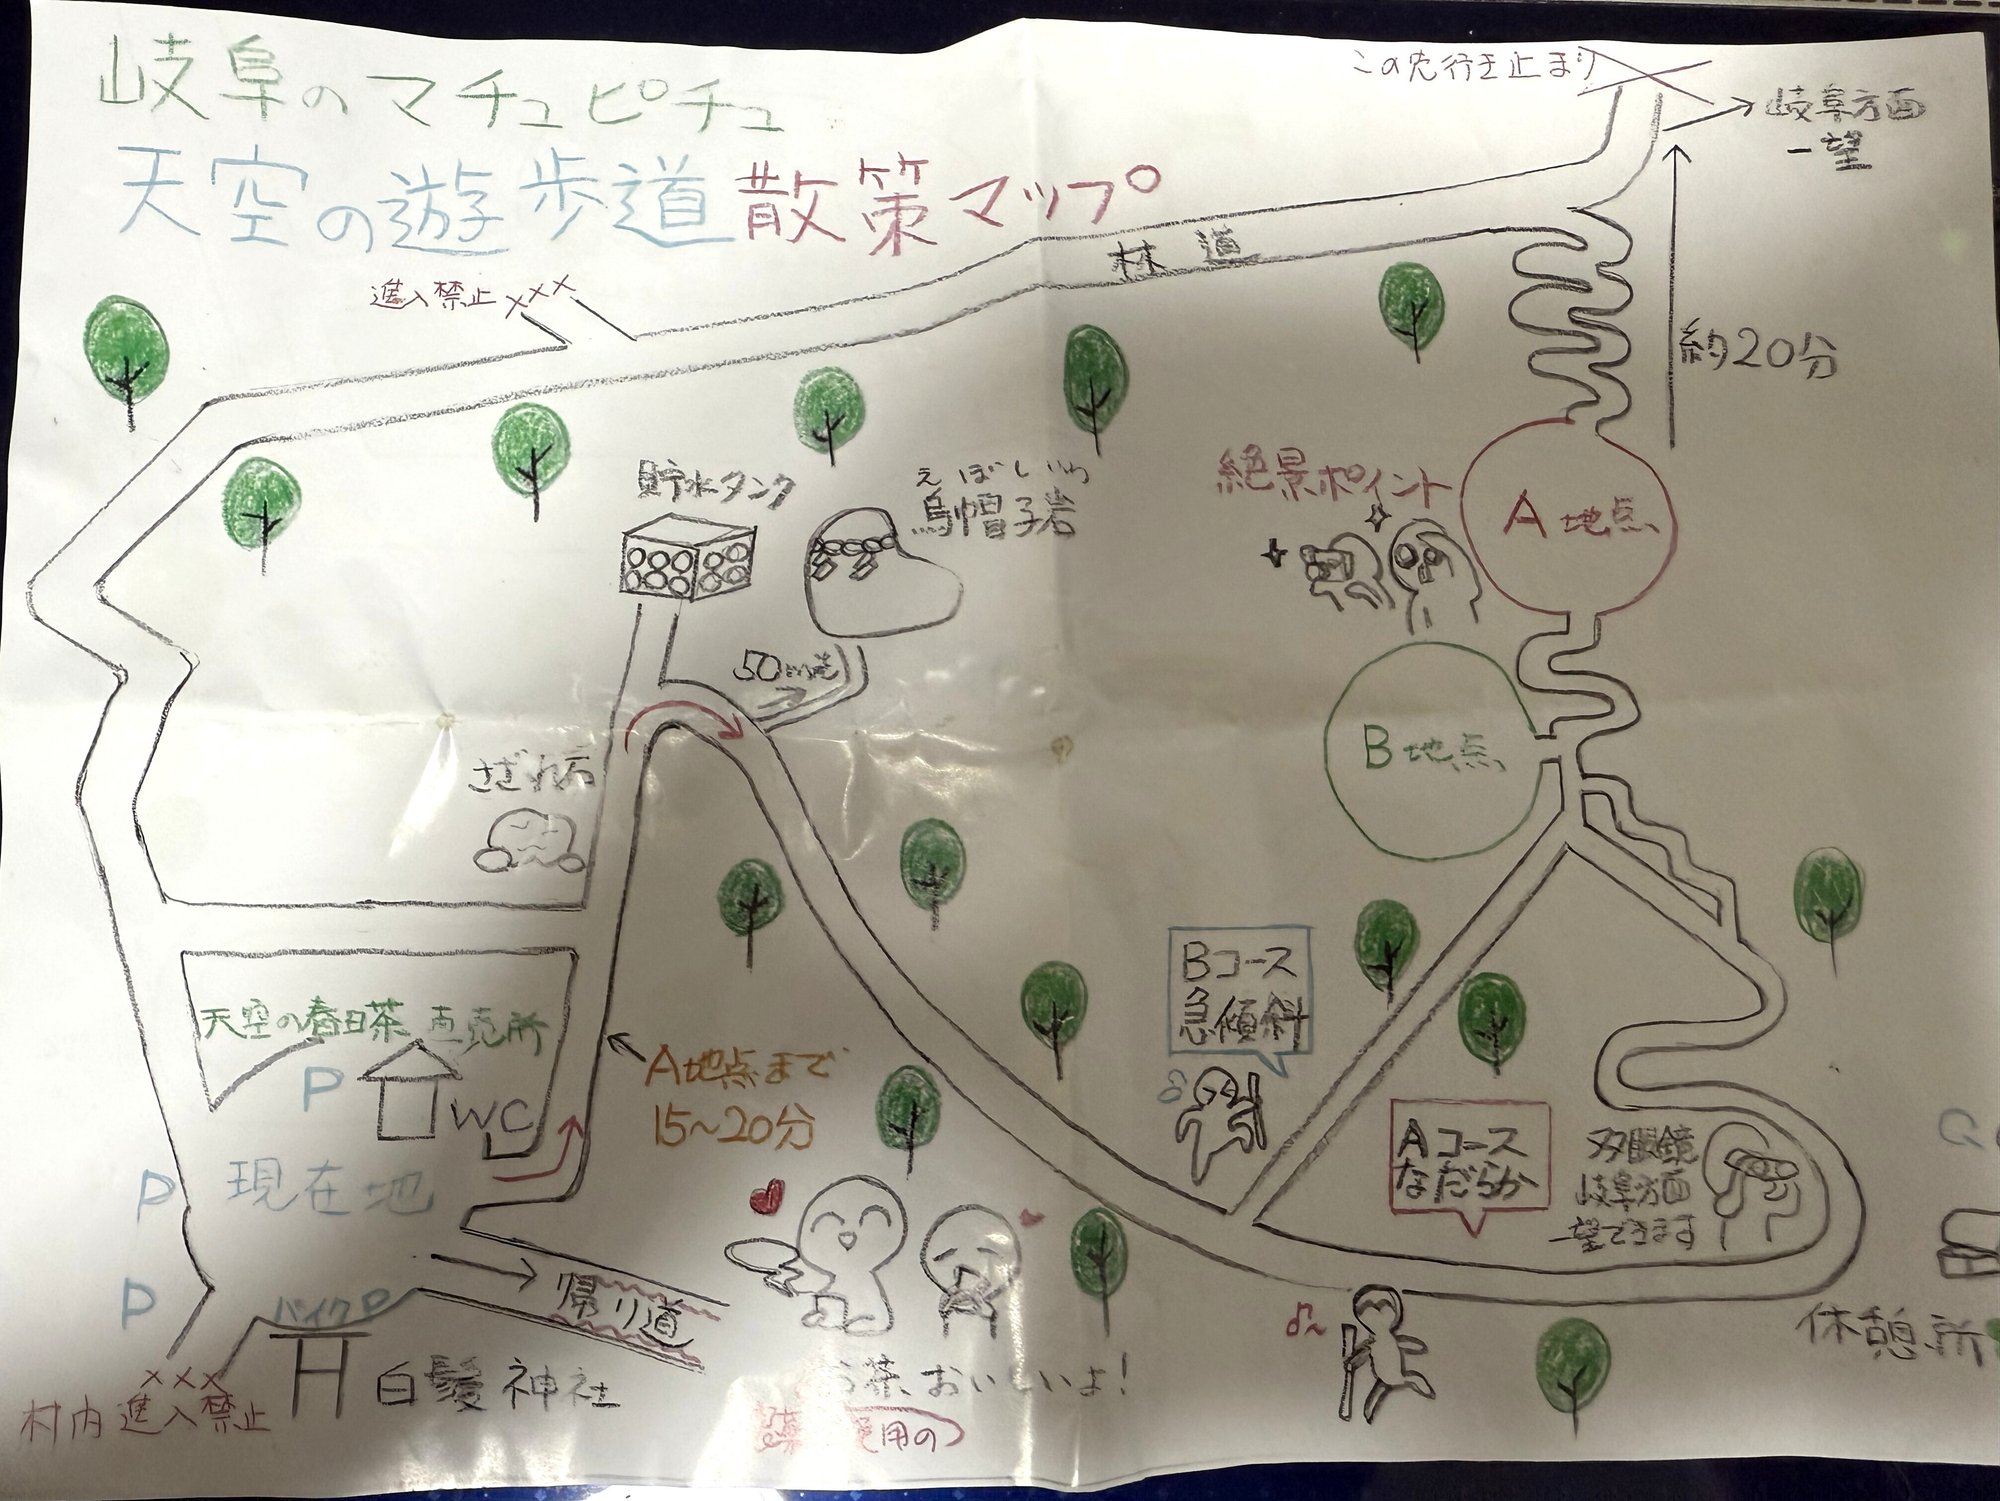 岐阜のマチュピチュ
天空の遊歩道散策マップ
この先行き止まり
岐阜方面
一望
林道
進入禁止
約20分
貯水タンク
えぼしいわ
烏帽子岩
絶景ポイント
A地点
50m先
B地点
さざれ石
Bコース
急傾斜
天空の春日茶 直売所
P
WC
A地点まで
15~20分
Aコース
なだらか
双眼鏡
岐阜方面
一望できます
現在地
P
P
バイクP
帰り道
白髪神社
村内進入禁止
お茶おいしいよ!
使用の
休憩所